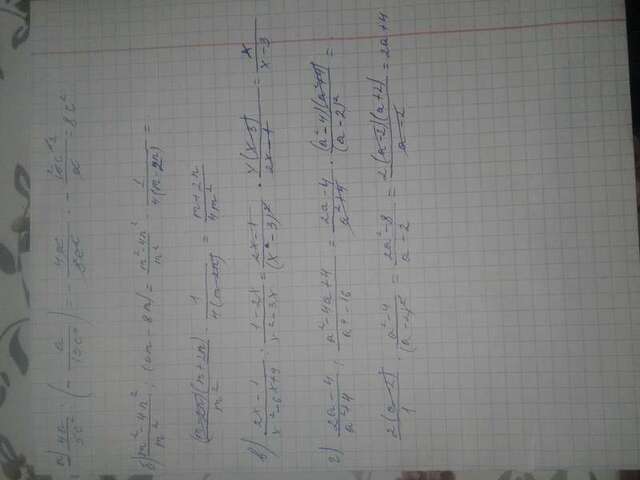 а) 4a/5c² : (- a/10c⁴) = - 4a/5c² · - 10c⁴/a = 8c²
б) m²-4n²/m² : (4m-8n) = m²-4n²/m² · 1/4(m-2n) =
(m-2n)(m+2n)/m² · 1/4(m-2n) = m+2n/4m²
в) 2x-1/x²-6x+9 : 1-2x/x²-3x = 2x-1/(x-3)² · x(x-3)/2x-1 = x/x-3
г) 2a-4/a²+4 : a²-4a+4/a⁴-16 = 2a-4/a²+4 · (a²-4)(a²+4)/(a-2)² =
2(a-2)/1 · a²-4/(a-2)² = 2a²-8/a-2 = 2(a-2)(a+2)/a-2 = 2a+4